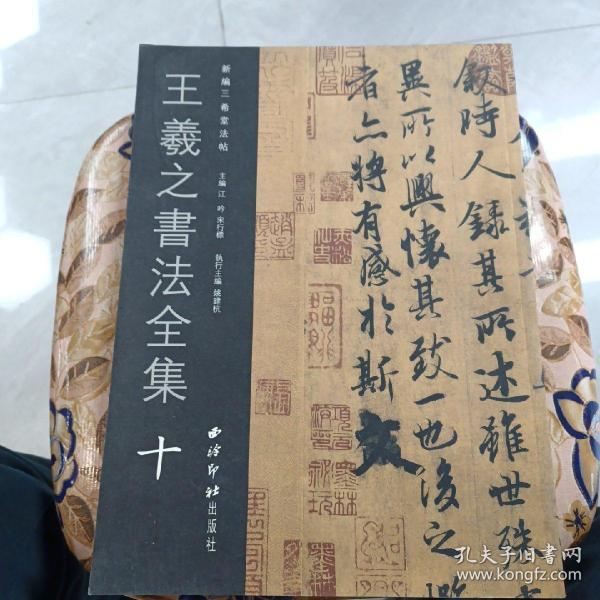 新編三希堂法帖
王羲之書法全集
十
主編 江吟 宋行標
執行主編 姚建杭
西泠印社出版社
叙時人錄其所述雖世殊
異所以興懷其致一也後之
者亦將有感於斯文
孔夫子旧書网
www.kongfz.com